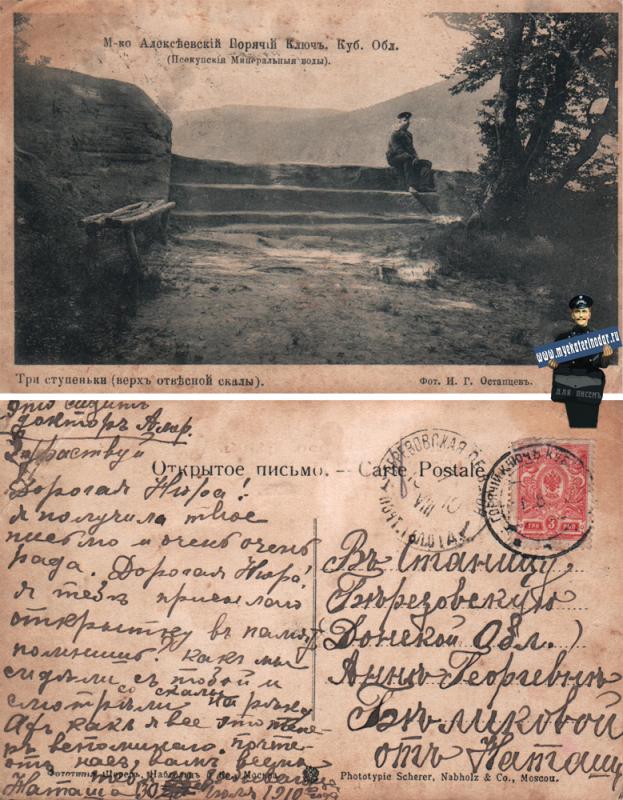 М-ко Алексѣевскій Горячій Ключъ. Куб. Обл.
(Псекупскія Минеральныя воды).
www.myekaterinodar.ru
ДЛЯ ПИСЕМЪ
Три ступеньки (верхъ отвѣсной скалы).
Фот. И. Г. Останцевъ.
это сидитъ
докторъ
Здраствуй
Дорогая Нюра!
я получила твое
письмо и очень очень
рада. Дорогая Нюра!
я тебѣ присылаю
открытку въ память
помнишь? какъ мы
сидѣли съ тобой и
смотрѣли со скалы на рѣку
какъ я все это
вспоминаю.
отъ насъ вамъ всемъ
Наташа 30 июля 1910 года
Открытое письмо. — Carte Postale
ГОРЯЧІЙ КЛЮЧЪ КУБ.
3
ТРИ КОП
Въ Станицу
Березовскую
Донской Обл.)
Аннѣ Георгевнѣ
Бѣликовой
отъ Наташи
Фототипія Шереръ, Набгольцъ и Ко., Москва.
Phototypie Scherer, Nabholz & Co., Moscou.